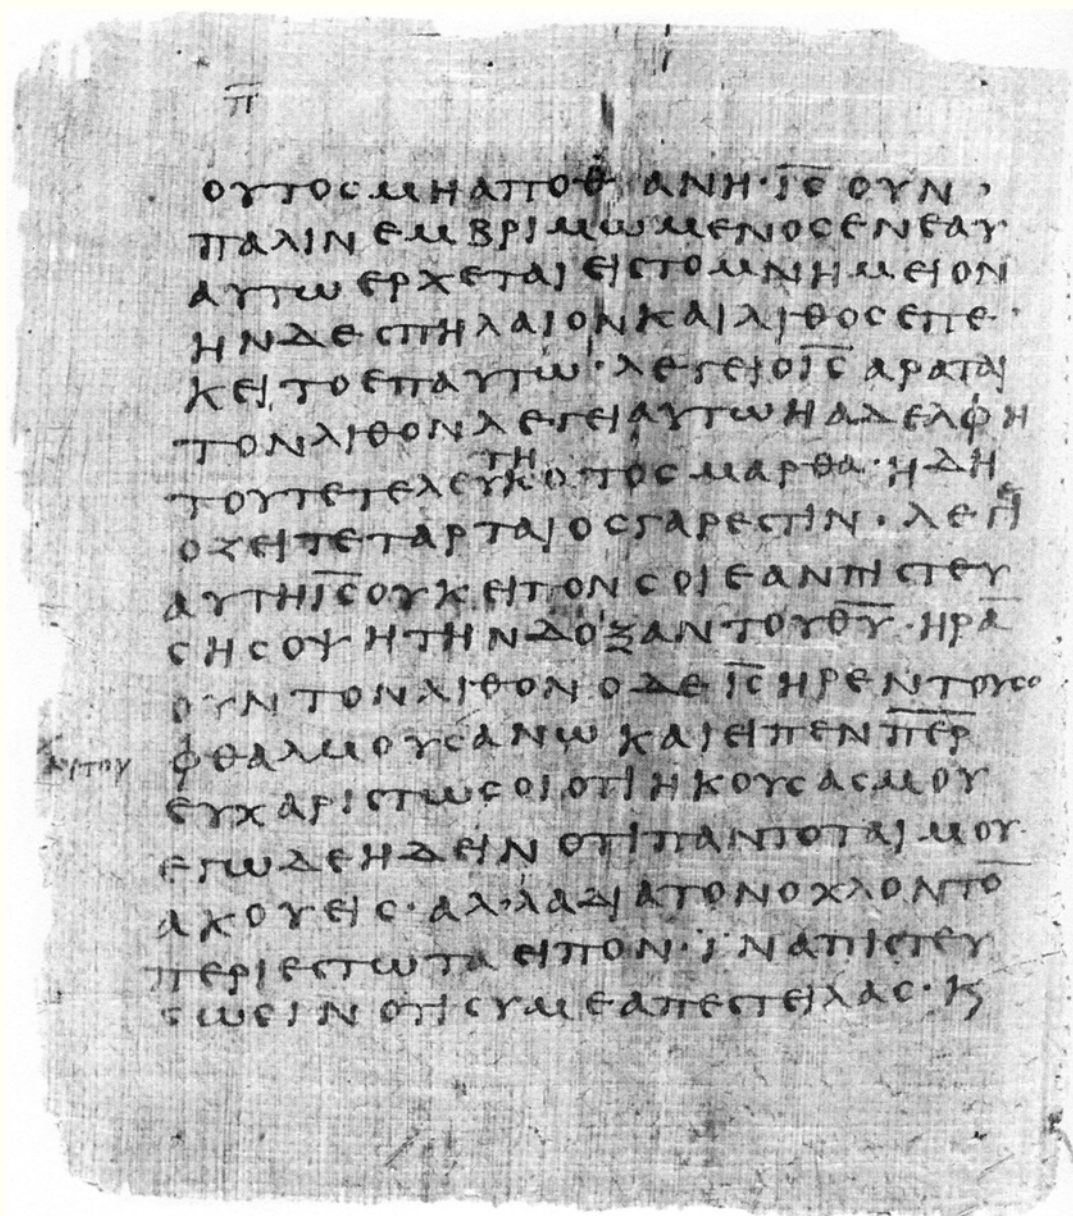 π̅
ουτος μη αποθ ανη· ι̅ς̅ ουν·
παλιν εμβριμωμενος εν εαυ
αυτω ερχεται εις το μνημειον
ην δε σπηλαιον και λιθος επε·
κειτο επ αυτω· λεγει ο ι̅ς̅ αραται
τον λιθον λεγει αυτω η αδελφη
του τετελευτηκοτος μαρθα· ηδη
οζει τεταρταιος γαρ εστιν· λεγει
αυτη ι̅ς̅ ουκ ειπον σοι εαν πιστευ
σης οψη την δοξαν του θ̅υ̅· ηρα̅
ουν τον λιθον ο δε ι̅ς̅ ηρεν τους ο
φθαλμους ανω και ειπεν π̅ε̅ρ̅
ευχαριστω σοι οτι ηκουσας μου
εγω δε ηδειν οτι παντοται μου·
ακουεις· αλλα δια τον οχλον το̅
περιεστωτα ειπον· ϊνα πιστευ
σωσιν οτι συ με απεστειλας· κς